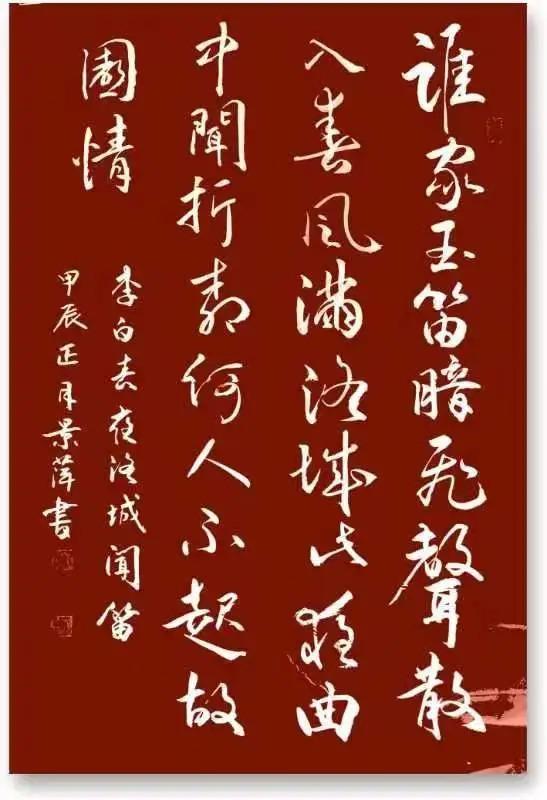 誰家玉笛暗飛聲散
入春風滿洛城此夜曲
中聞折柳何人不起故
園情
李白春夜洛城聞笛
甲辰正月景萍書